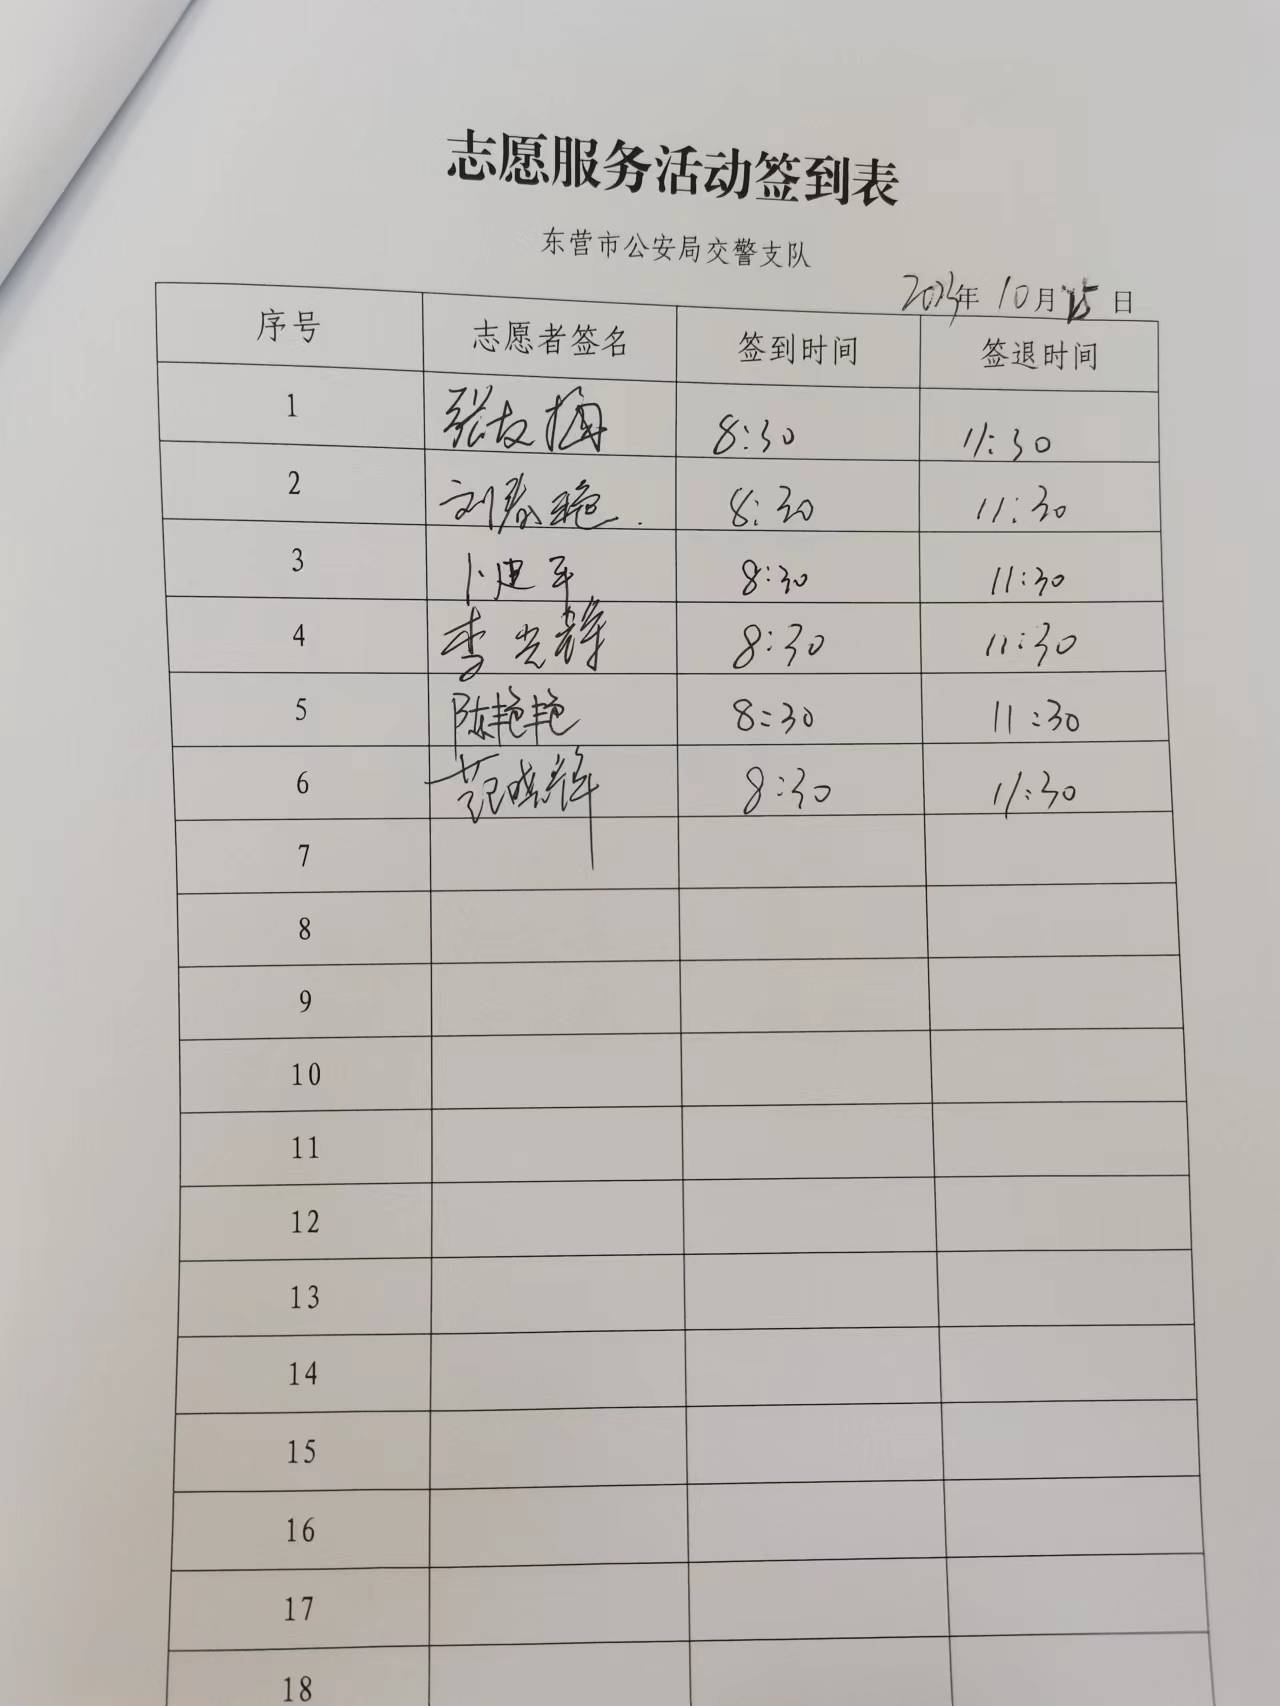 志愿服务活动签到表
东营市公安局交警支队
2023年 10月 15日
序号 志愿者签名 签到时间 签退时间
1 张友梅 8:30 11:30
2 刘春艳. 8:30 11:30
3 卜建军 8:30 11:30
4 李光辉 8:30 11:30
5 陈艳艳 8:30 11:30
6 范晓辉 8:30 11:30
7
8
9
10
11
12
13
14
15
16
17
18